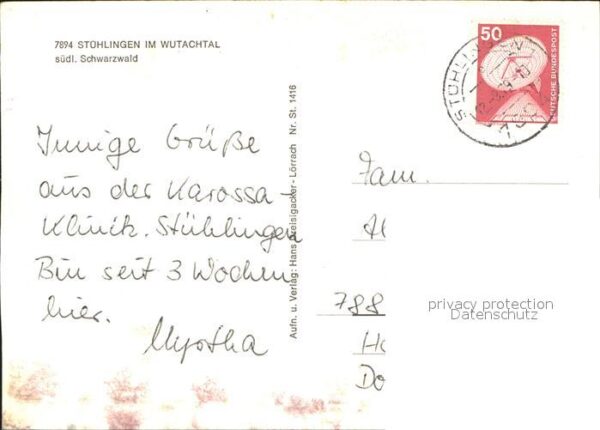 7894 STÜHLINGEN IM WUTACHTAL
südl. Schwarzwald
Innige Grüße
aus der Karossa-
Klinik. Stühlingen
Bin seit 3 Wochen
hier.
Myrtha
Aufn. u. Verlag: Hans Dreisigacker - Lörrach Nr. St. 1416
50
DEUTSCHE BUNDESPOST
Fam.
788
privacy protection
Datenschutz